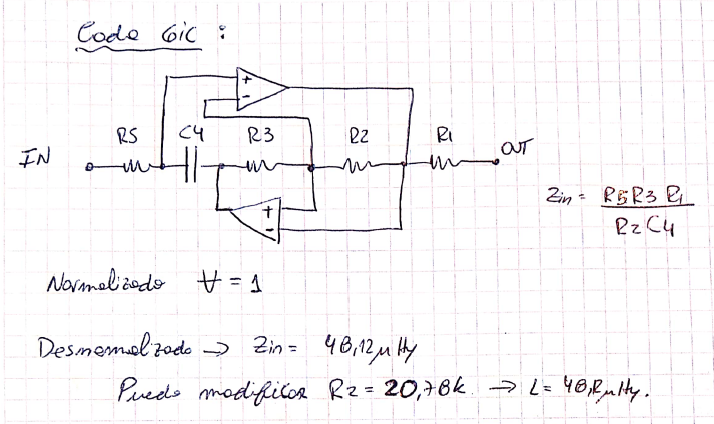 Code GiC :
+
-
R5 C4 R3 R2 R1
IN OUT
+
-
Zin = R5R3 R1
R2 C4
Normalizado ∀ = 1
Desnormalizado → Zin = 48,12 μHy
Puedo modificar R2 = 20,78k → L = 48,2 μHy.